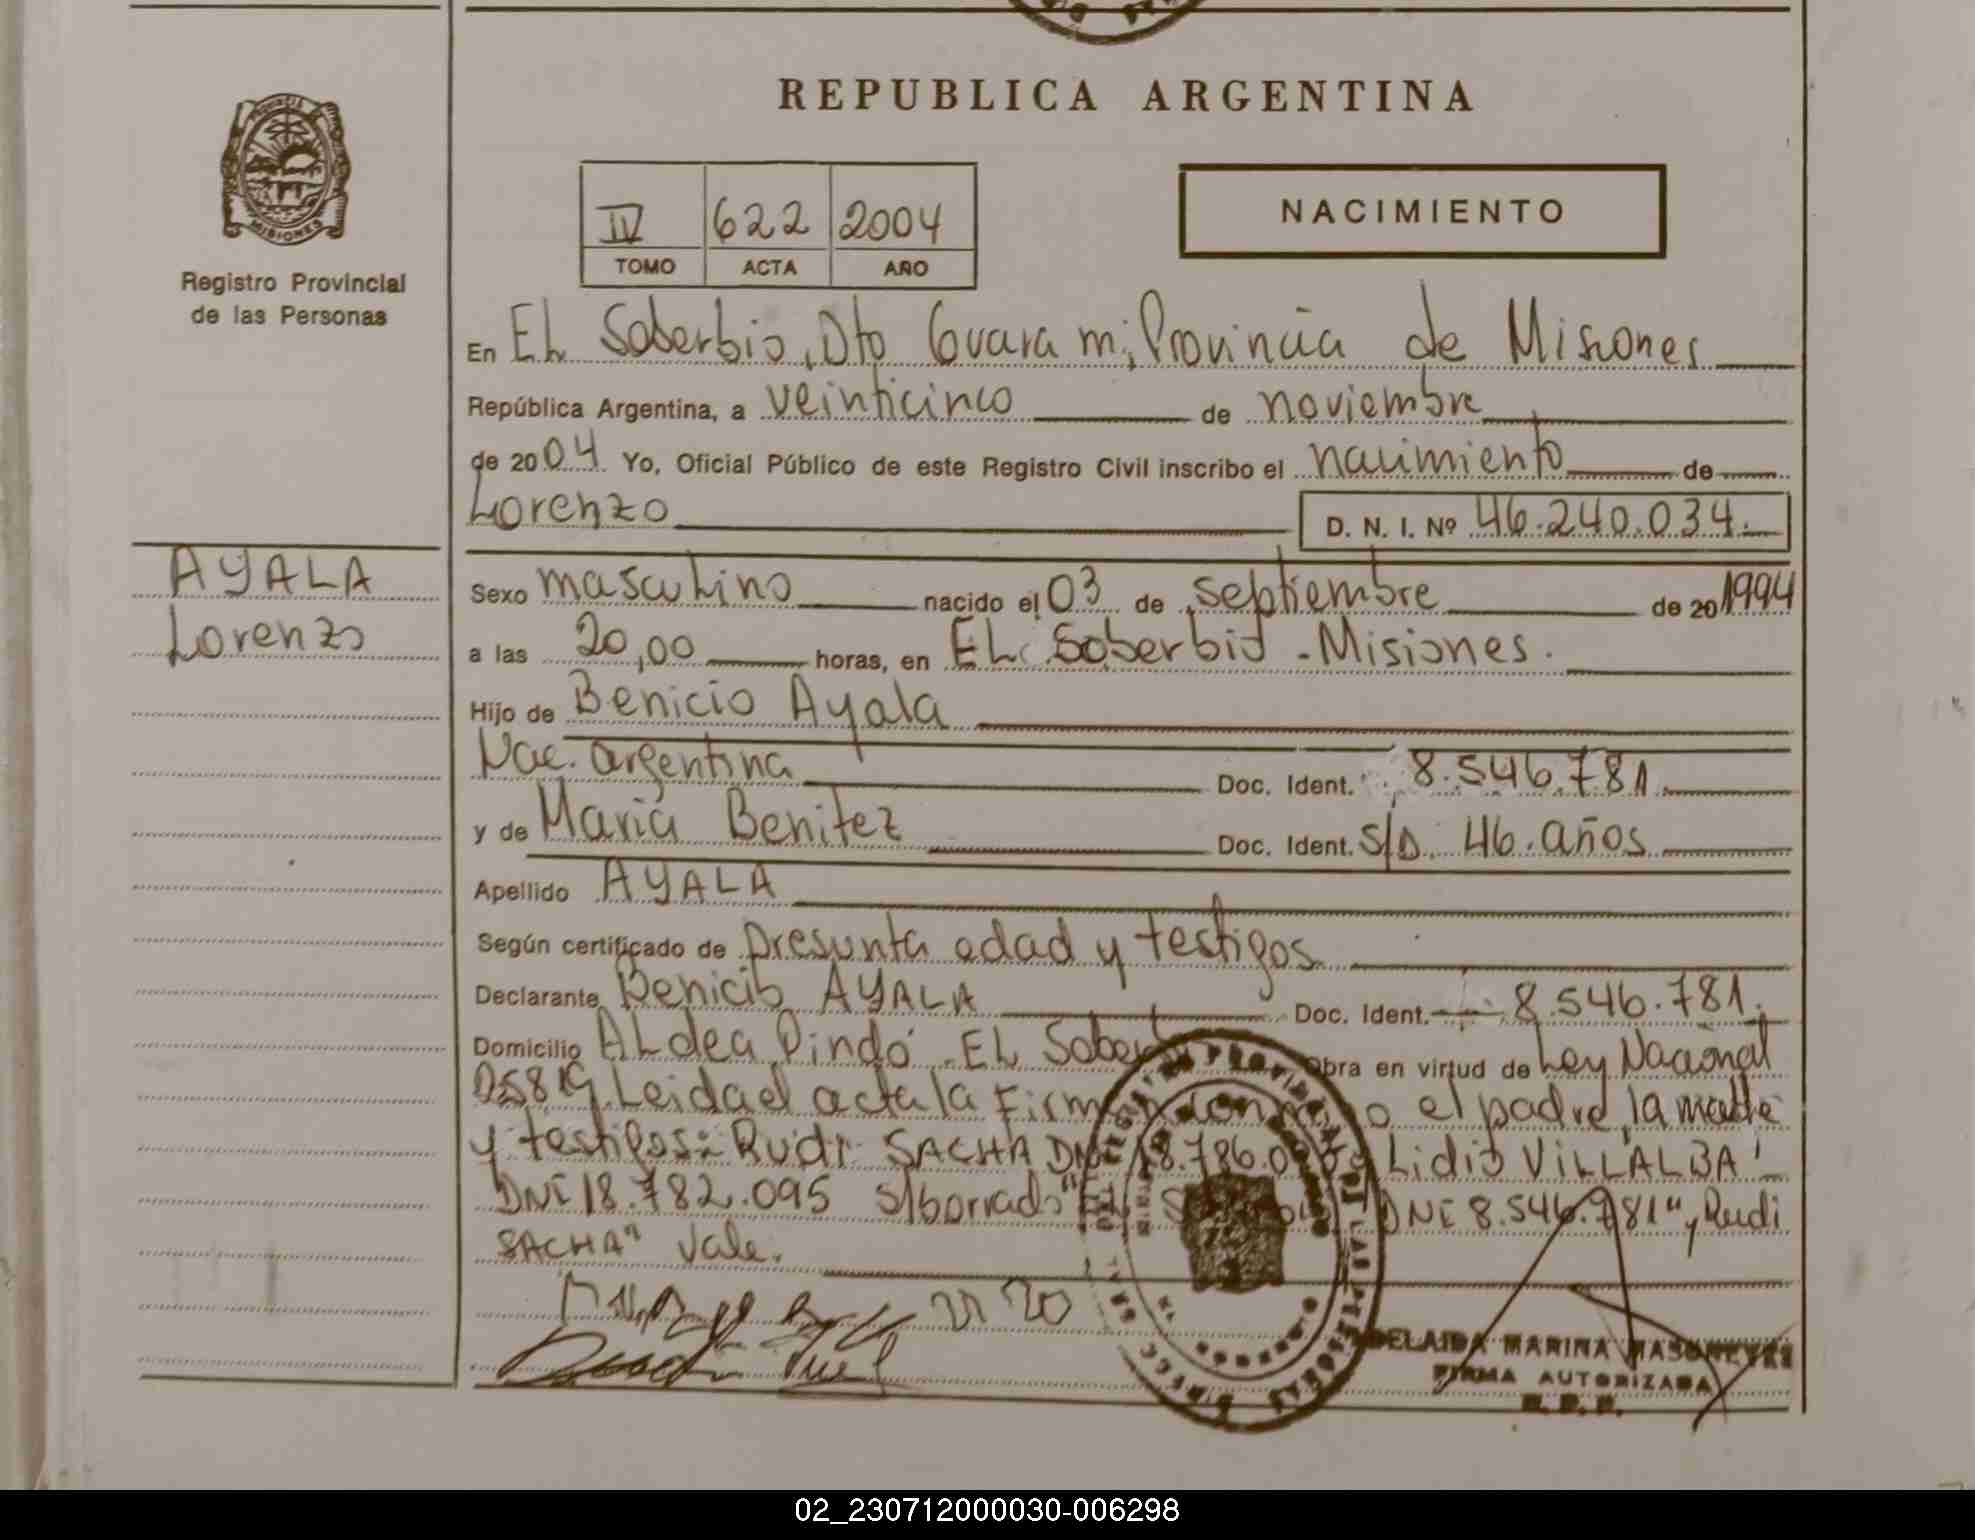 REPUBLICA ARGENTINA
PROVINCIA
MISIONES
Registro Provincial
de las Personas
IV 622 2004
TOMO ACTA AÑO
NACIMIENTO
En EL Soberbio, Dto Guarami, Provincia de Misiones
República Argentina, a veinticinco de noviembre
de 2004 Yo, Oficial Público de este Registro Civil inscribo el nacimiento de
Lorenzo D. N. I. Nº 46.240.034.
AYALA
Lorenzo
Sexo masculino nacido el 03 de septiembre de 20 1994
a las 20,00 horas, en EL Soberbio - Misiones.
Hijo de Benicio Ayala
Nac. argentina Doc. Ident. 8.546.781
y de Maria Benitez Doc. Ident. S/D. 46. años
Apellido AYALA
Según certificado de presunta edad y testigos
Declarante Benicio AYALA Doc. Ident. 8.546.781.
Domicilio ALdea Pindó. EL Obra en virtud de Ley Nacional
25819. Leida el acta la Firman el padre, la madre
y testigos: Rudi SACHA Lidio VILLALBA
DNI 18.782.095 s/borrado" DNI 8.546.781", Rudi
SACHA" Vale.
MARINA
FIRMA AUTORIZADA
02_230712000030-006298